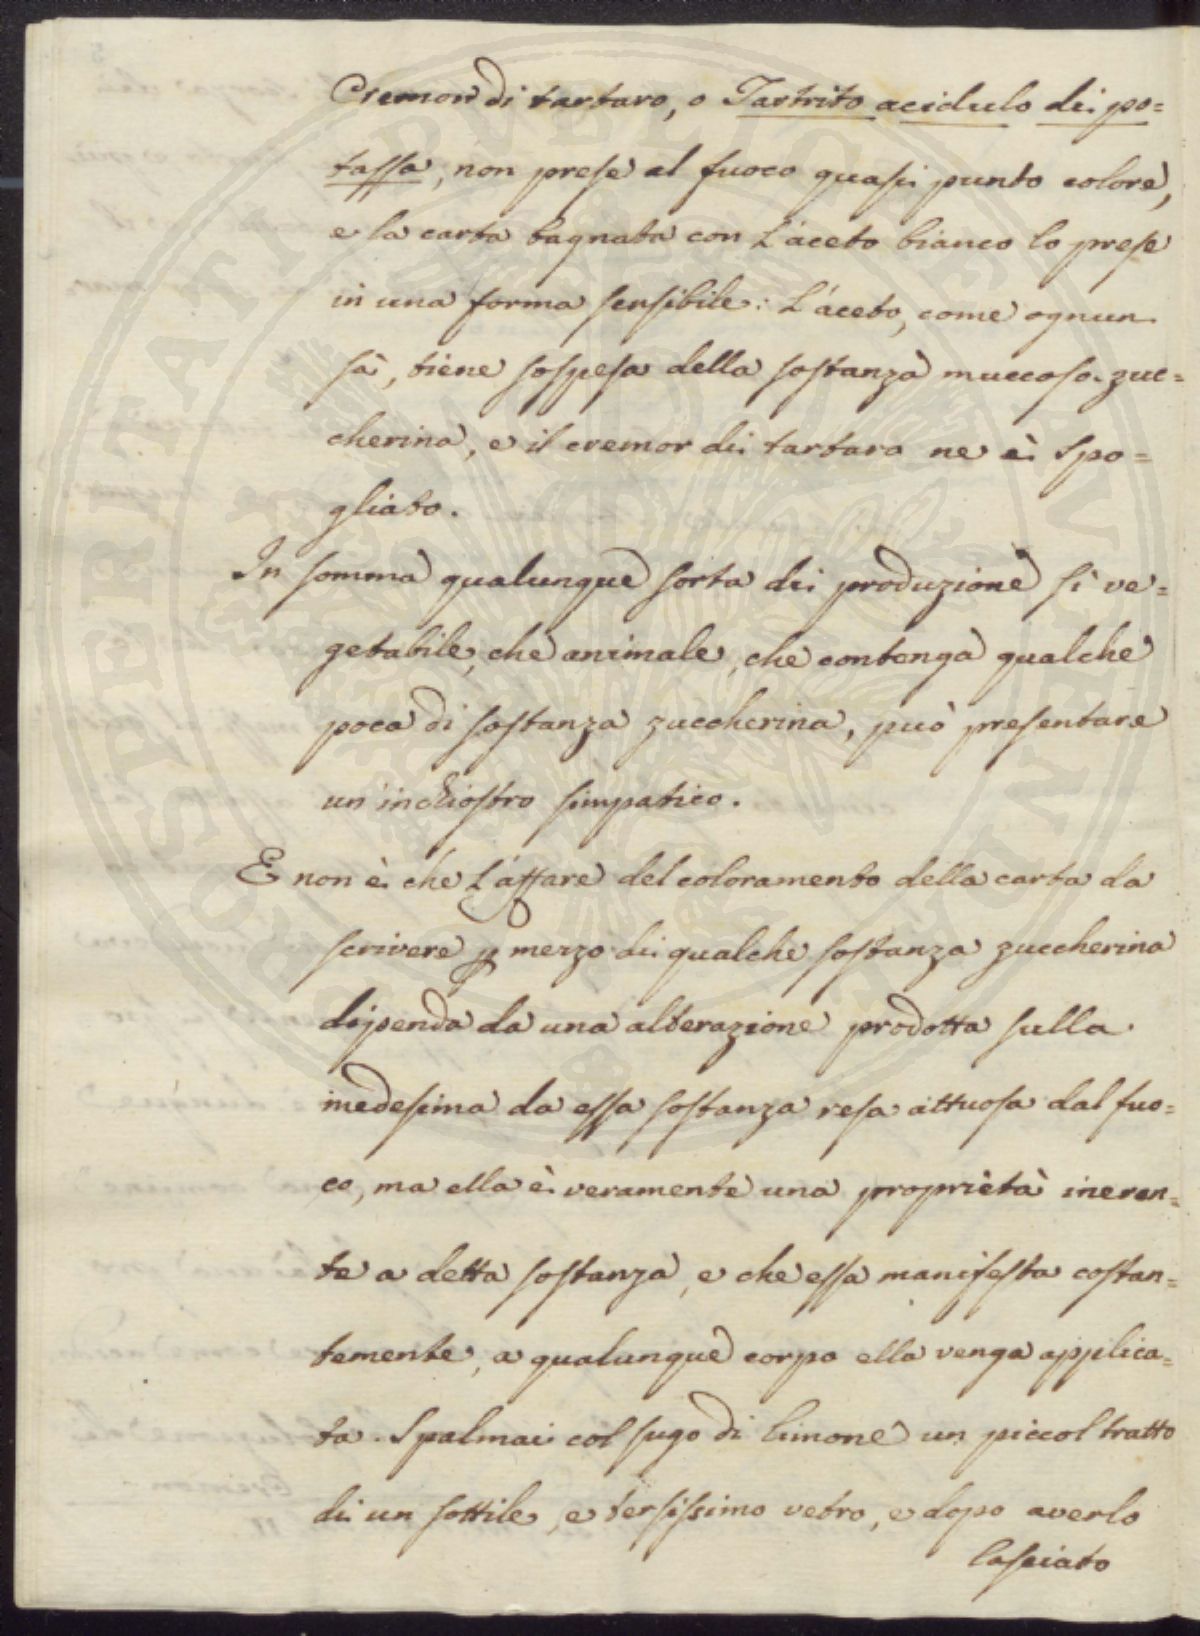 Cremor di tartaro, o Tartrito acidulo di po=
tassa, non prese al fuoco quasi punto colore,
e la carta bagnata con L'aceto bianco lo prese
in una forma sensibile: L'aceto, come ognun
sà, tiene sospesa della sostanza muccoso-zuc=
cherina, e il cremor di tartaro ne è spo=
gliato.
In somma qualunque sorta di produzione sì ve=
getabile, che animale, che contenga qualche
poca di sostanza zuccherina, può presentare
un'inchiostro simpatico.
E non è che L'affare del coloramento della carta da
scrivere p mezzo di qualche sostanza zuccherina
dipenda da una alterazione prodotta sulla
medesima da essa sostanza resa attuosa dal fuo=
co, ma ella è veramente una proprietà ineren=
te a detta sostanza, e che essa manifesta costan=
temente, a qualunque corpo ella venga applica=
ta. Spalmai col sugo di limone un piccol tratto
di un sottile, e tersissimo vetro, e dopo averlo
lasciato
PROSPERITATI PVBLICAE AVGENDAE